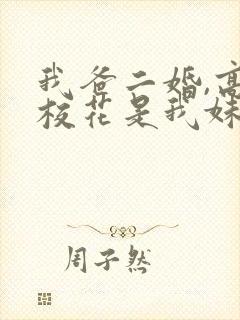 我爸二婚,高
校花是我妹
周子然